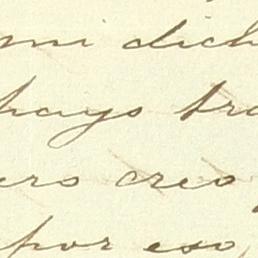 mi dich
hays tra
ero creo
por eso,